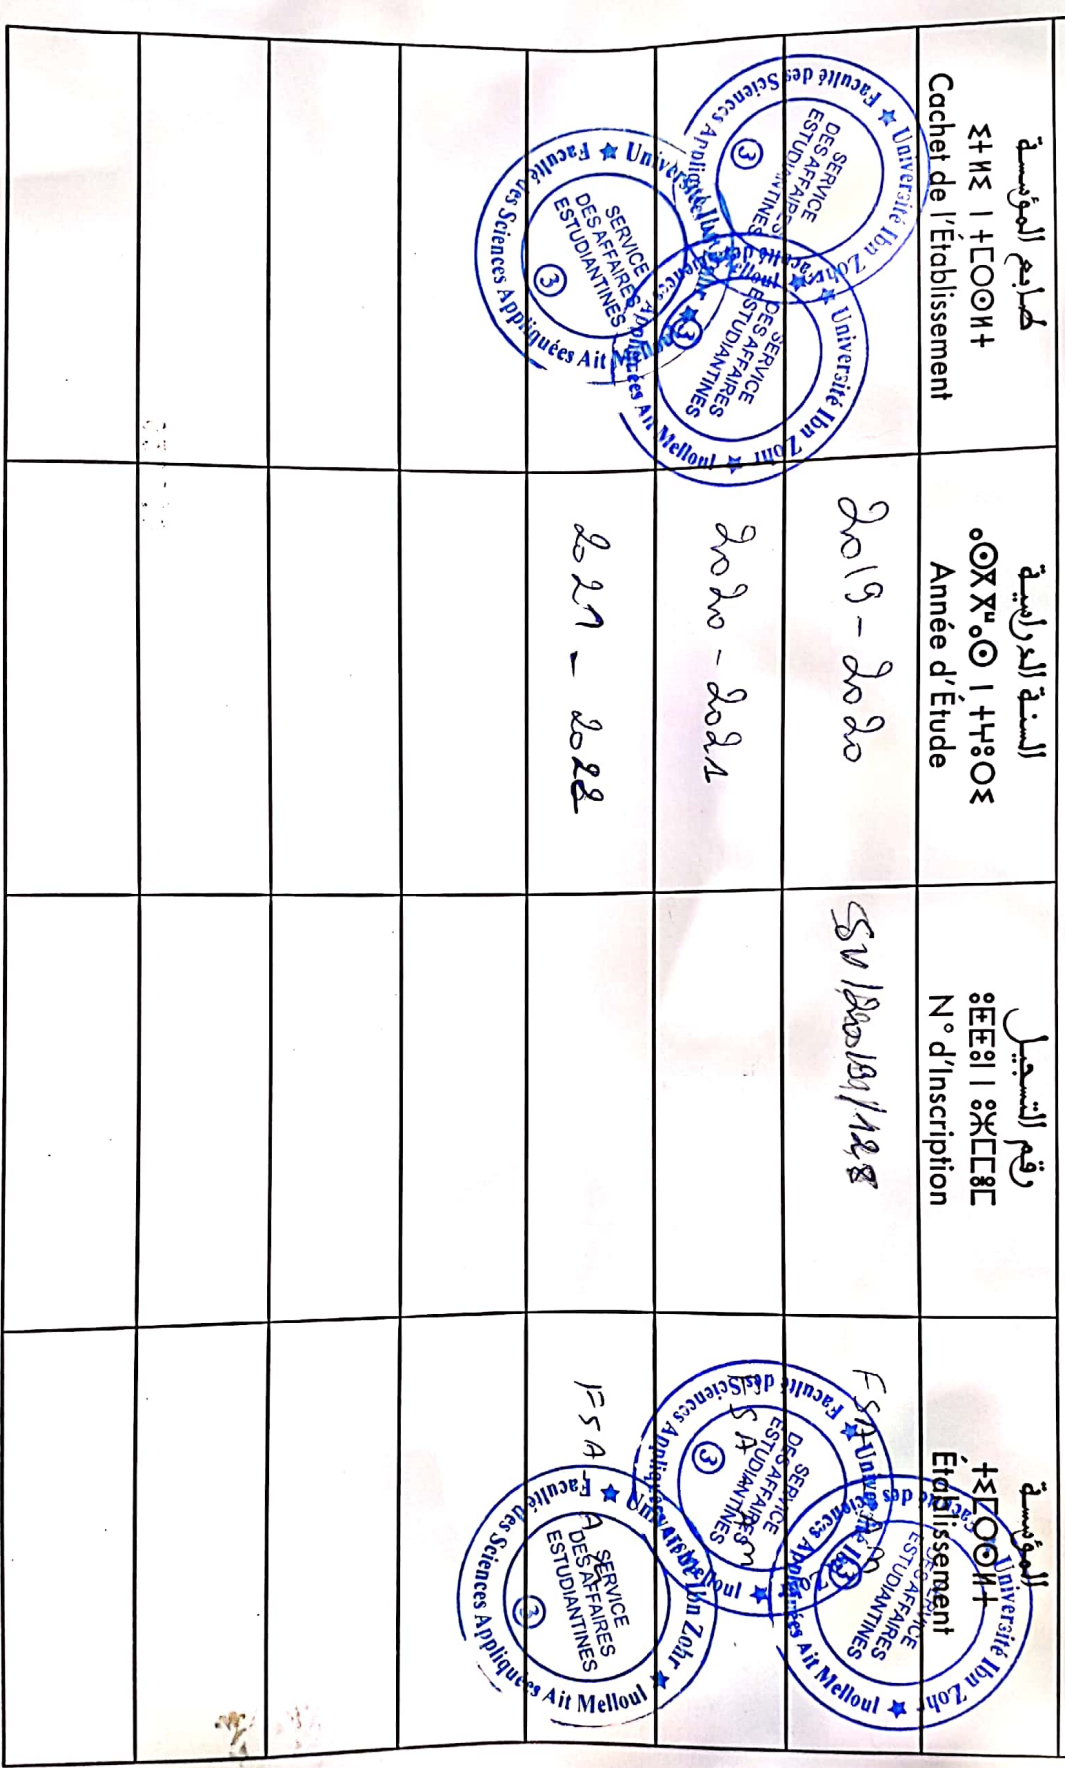 طابع المؤسسة
ⵉⵜⵍⵉ ⵏ ⵜⵎⵔⵙⵍⵜ
Cachet de l'Établissement
السنة الدراسية
ⴰⵙⴳⴳⵯⴰⵙ ⵏ ⵜⵖⵓⵔⵉ
Année d'Étude
رقم التسجيل
N° d'Inscription
المؤسسة
Établissement
Université Ibn Zohr
Faculté des Sciences Appliquées Ait Melloul
SERVICE
DES AFFAIRES
ESTUDIANTINES
3
2019 - 2020
FSA Am
Université Ibn Zohr
Faculté des Sciences Appliquées Ait Melloul
SERVICE
DES AFFAIRES
ESTUDIANTINES
3
Université Ibn Zohr
Faculté des Sciences Appliquées Ait Melloul
SERVICE
DES AFFAIRES
ESTUDIANTINES
3
2020 - 2021
FSA Am
Université Ibn Zohr
Faculté des Sciences Appliquées Ait Melloul
SERVICE
DES AFFAIRES
ESTUDIANTINES
3
Université Ibn Zohr
Faculté des Sciences Appliquées Ait Melloul
SERVICE
DES AFFAIRES
ESTUDIANTINES
3
2021 - 2022
FSA
Université Ibn Zohr
Faculté des Sciences Appliquées Ait Melloul
SERVICE
DES AFFAIRES
ESTUDIANTINES
3